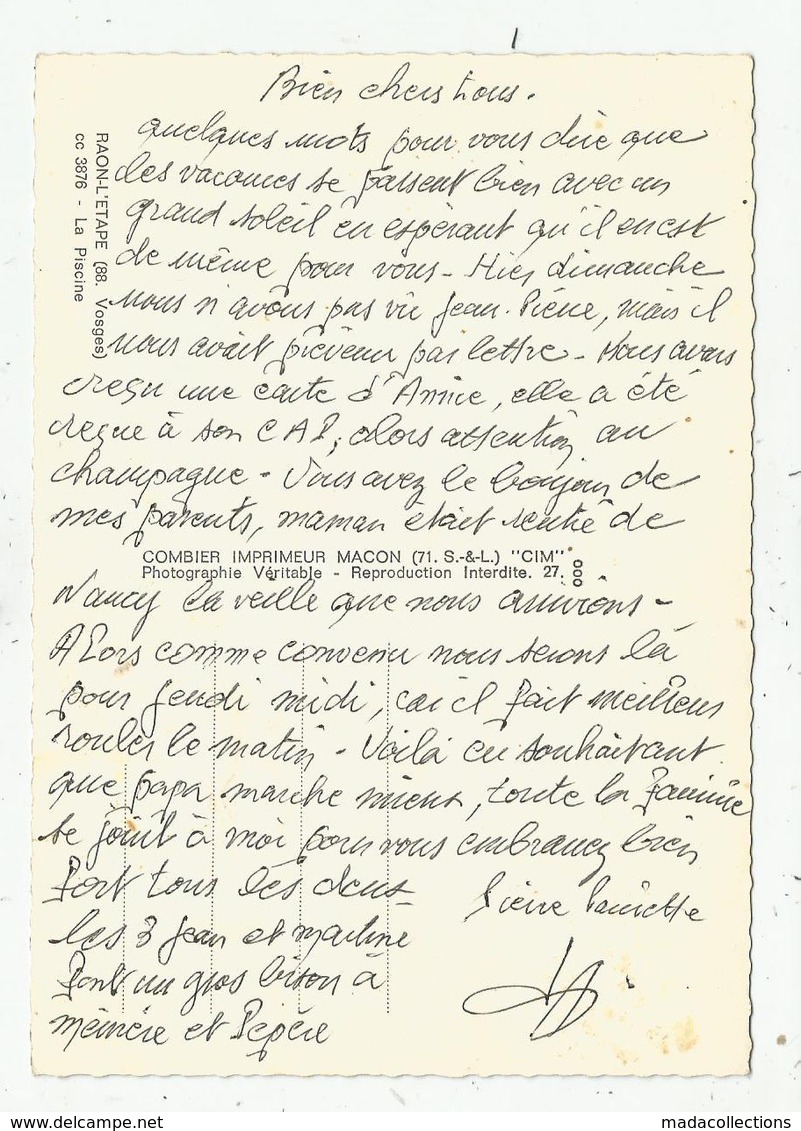 Bien chers tous.
quelques mots pour vous dire que
les vacances se passent bien avec un
grand soleil en espérant qu'il en est
de même pour vous - Hier dimanche
nous n'avons pas vu Jean-Pierre, mais il
nous avait prévenu par lettre - Nous avons
reçu une carte d'Annie, elle a été
reçue à son CAP, alors attention au
champagne - Vous avez le bonjour de
mes parents, maman était rentré de
Nancy la veille que nous arrivions -
Alors comme convenu nous serons là
pour jeudi midi, car il fait meilleur
rouler le matin - Voilà en souhaitant
que papa marche mieux, toute la famille
se joint à moi pour vous embrassez bien
fort tous les deux -
Pierre
les 3 Jean et Martine
font un gros bison à
mémère et Pépère
RAON-L'ETAPE (88. Vosges)
cc 3876 - La Piscine
COMBIER IMPRIMEUR MACON (71. S.-&-L.) "CIM"
Photographie Véritable - Reproduction Interdite. 27. 000
madacollections